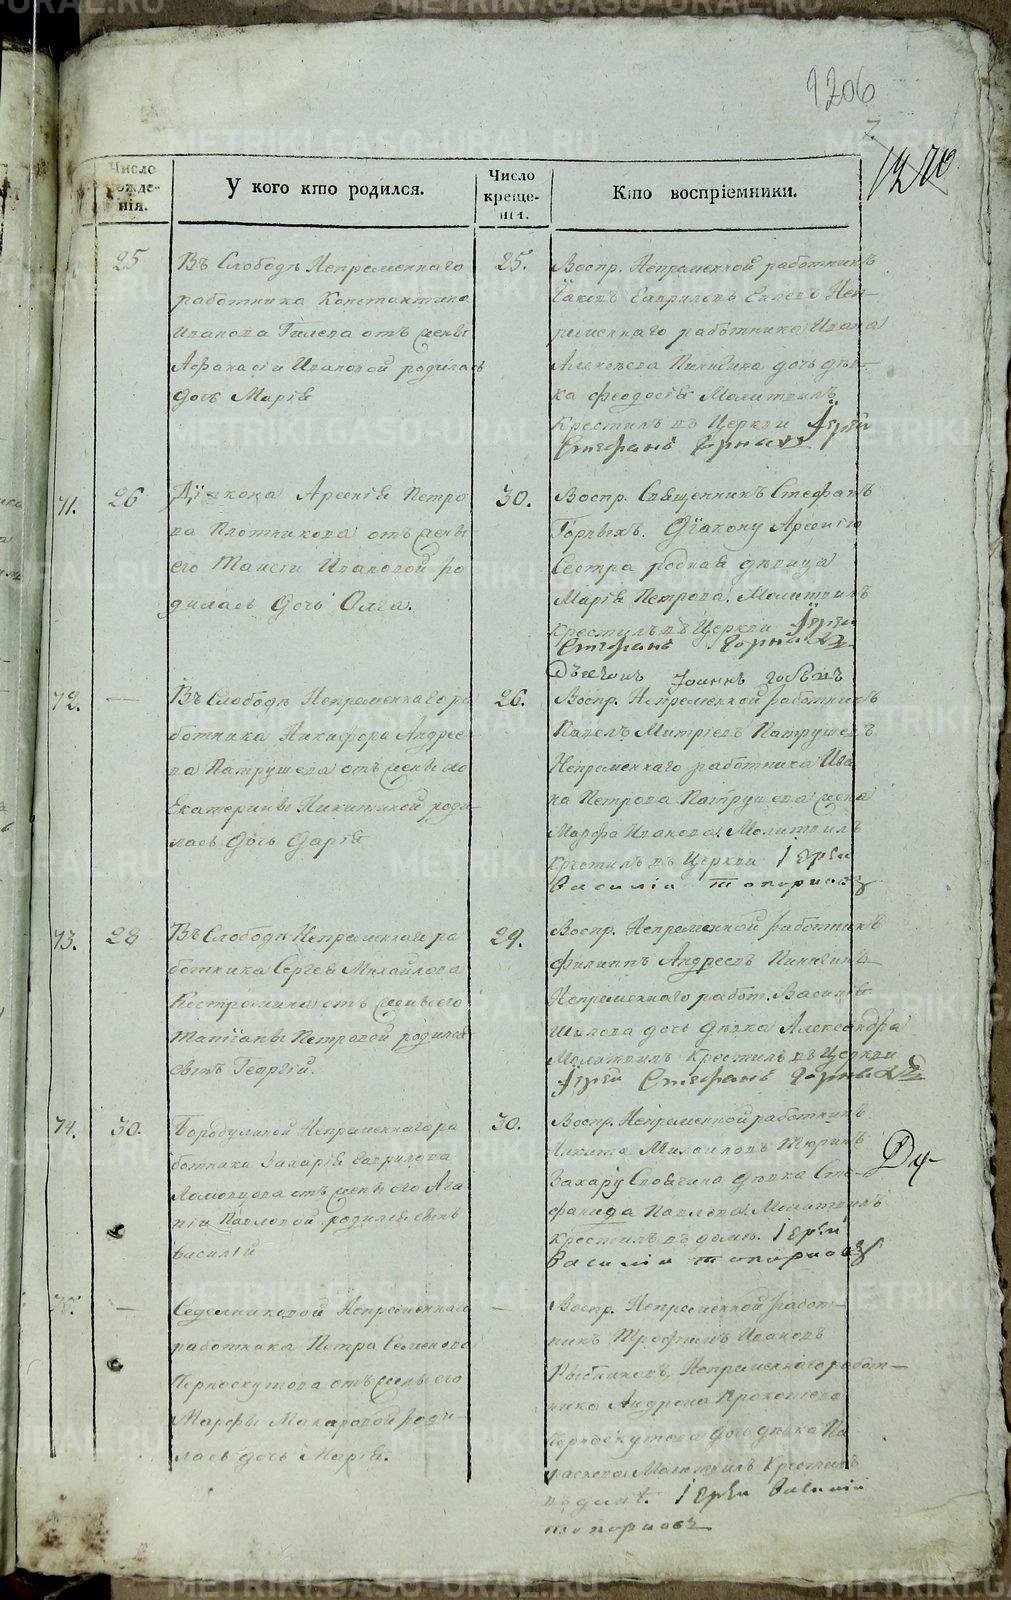 1206
7.
1270.
Число рожде-нія.
У кого кто родился.
Число креще-нія.
Кто воспріемники.
25
Въ Слободѣ Непременнаго
работника Константина
Иванова Гилева отъ жены
Афанасіи Ивановой родилась
дочь Марія
25.
Воспр. Непременной работникъ
Іаковъ Гавриловъ Неп-
ременнаго работника Ивана
Алексѣева Пинигина дочь дѣв-
ка Феодосія Молитвилъ
Крестилъ въ Церкви Іерей
Стефанъ Горныхъ
71.
26
Діакона Арсенія Петро
ва Плотникова отъ жены
его Таисіи Ивановой ро
дилась дочь Олга.
30.
Воспр. Священникъ Стефанъ
Горныхъ. Діакону Арсенію
Сестра родная дѣвица
Марія Петрова. Молитвилъ
Крестилъ въ Церкви Іерей
Стефанъ Горныхъ
Дьячокъ Іоаннъ
72.
—
Въ Слободѣ Непременнаго ра
ботника Никифора Андрее
ва Патрушева отъ жены его
Екатерины Никитиной роди-
лась дочь Дарія
26.
Воспр. Непременной работникъ
Павелъ Митріевъ Патрушевъ
Непременнаго работника Ива
на Петрова Патрушева жена
Марфа Иванова. Молитвилъ
Крестилъ въ Церкви Іерей
Василій Топорковъ
73.
28
Въ Слободѣ Непременнаго ра
ботника Сергея Михайлова
Костромина отъ жены его
Татіаны Петровой родился
сынъ Георгій.
29.
Воспр. Непременной работникъ
Филиппъ Андреевъ Пинигинъ
Непременнаго работ. Василія
Шилова дочь дѣвка Александра
Молитвилъ Крестилъ въ Церкви
Іерей Стефанъ Горныхъ
74.
30.
Бородулиной Непременнаго ра
ботника Захарія Гаврилова
Ломовцова отъ жены его Ага
піи Павловой родился сынъ
Василій
30.
Воспр. Непременной работникъ
Никита Михаиловъ Тюринъ
Захару Своячина дѣвка Сте-
фанида Павлова. Молитвилъ
Крестилъ въ домѣ. Іерей
Василій Топорковъ
75.
—
Седелниковой Непременнаго
работника Петра Семенова
Черноскутова отъ жены его
Марфы Макаровой роди
лась дочь Марія.
—
Воспр. Непременной работ-
никъ Трофимъ Ивановъ
Рыбниковъ, Непременнаго работ-
ника Андрея Прокопьева
Черноскутова дочь дѣвка Па
расковья Молитвилъ Крестилъ
въ домѣ. Іерей Василій
Топорковъ
METRIKI.GASO-URAL.RU